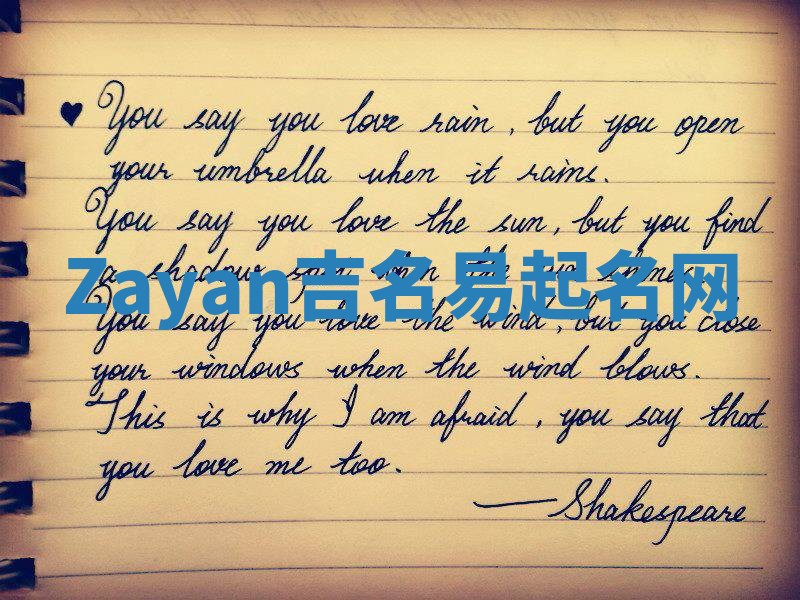 ♥ You say you love rain, but you open
your umbrella when it rains.
You say you love the sun, but you find
a shadow spot when the sun shines.
Zayan吉名易起名网
You say you love the wind, but you close
your windows when the wind blows.
This is why I am afraid, you say that
you love me too.
— Shakespeare